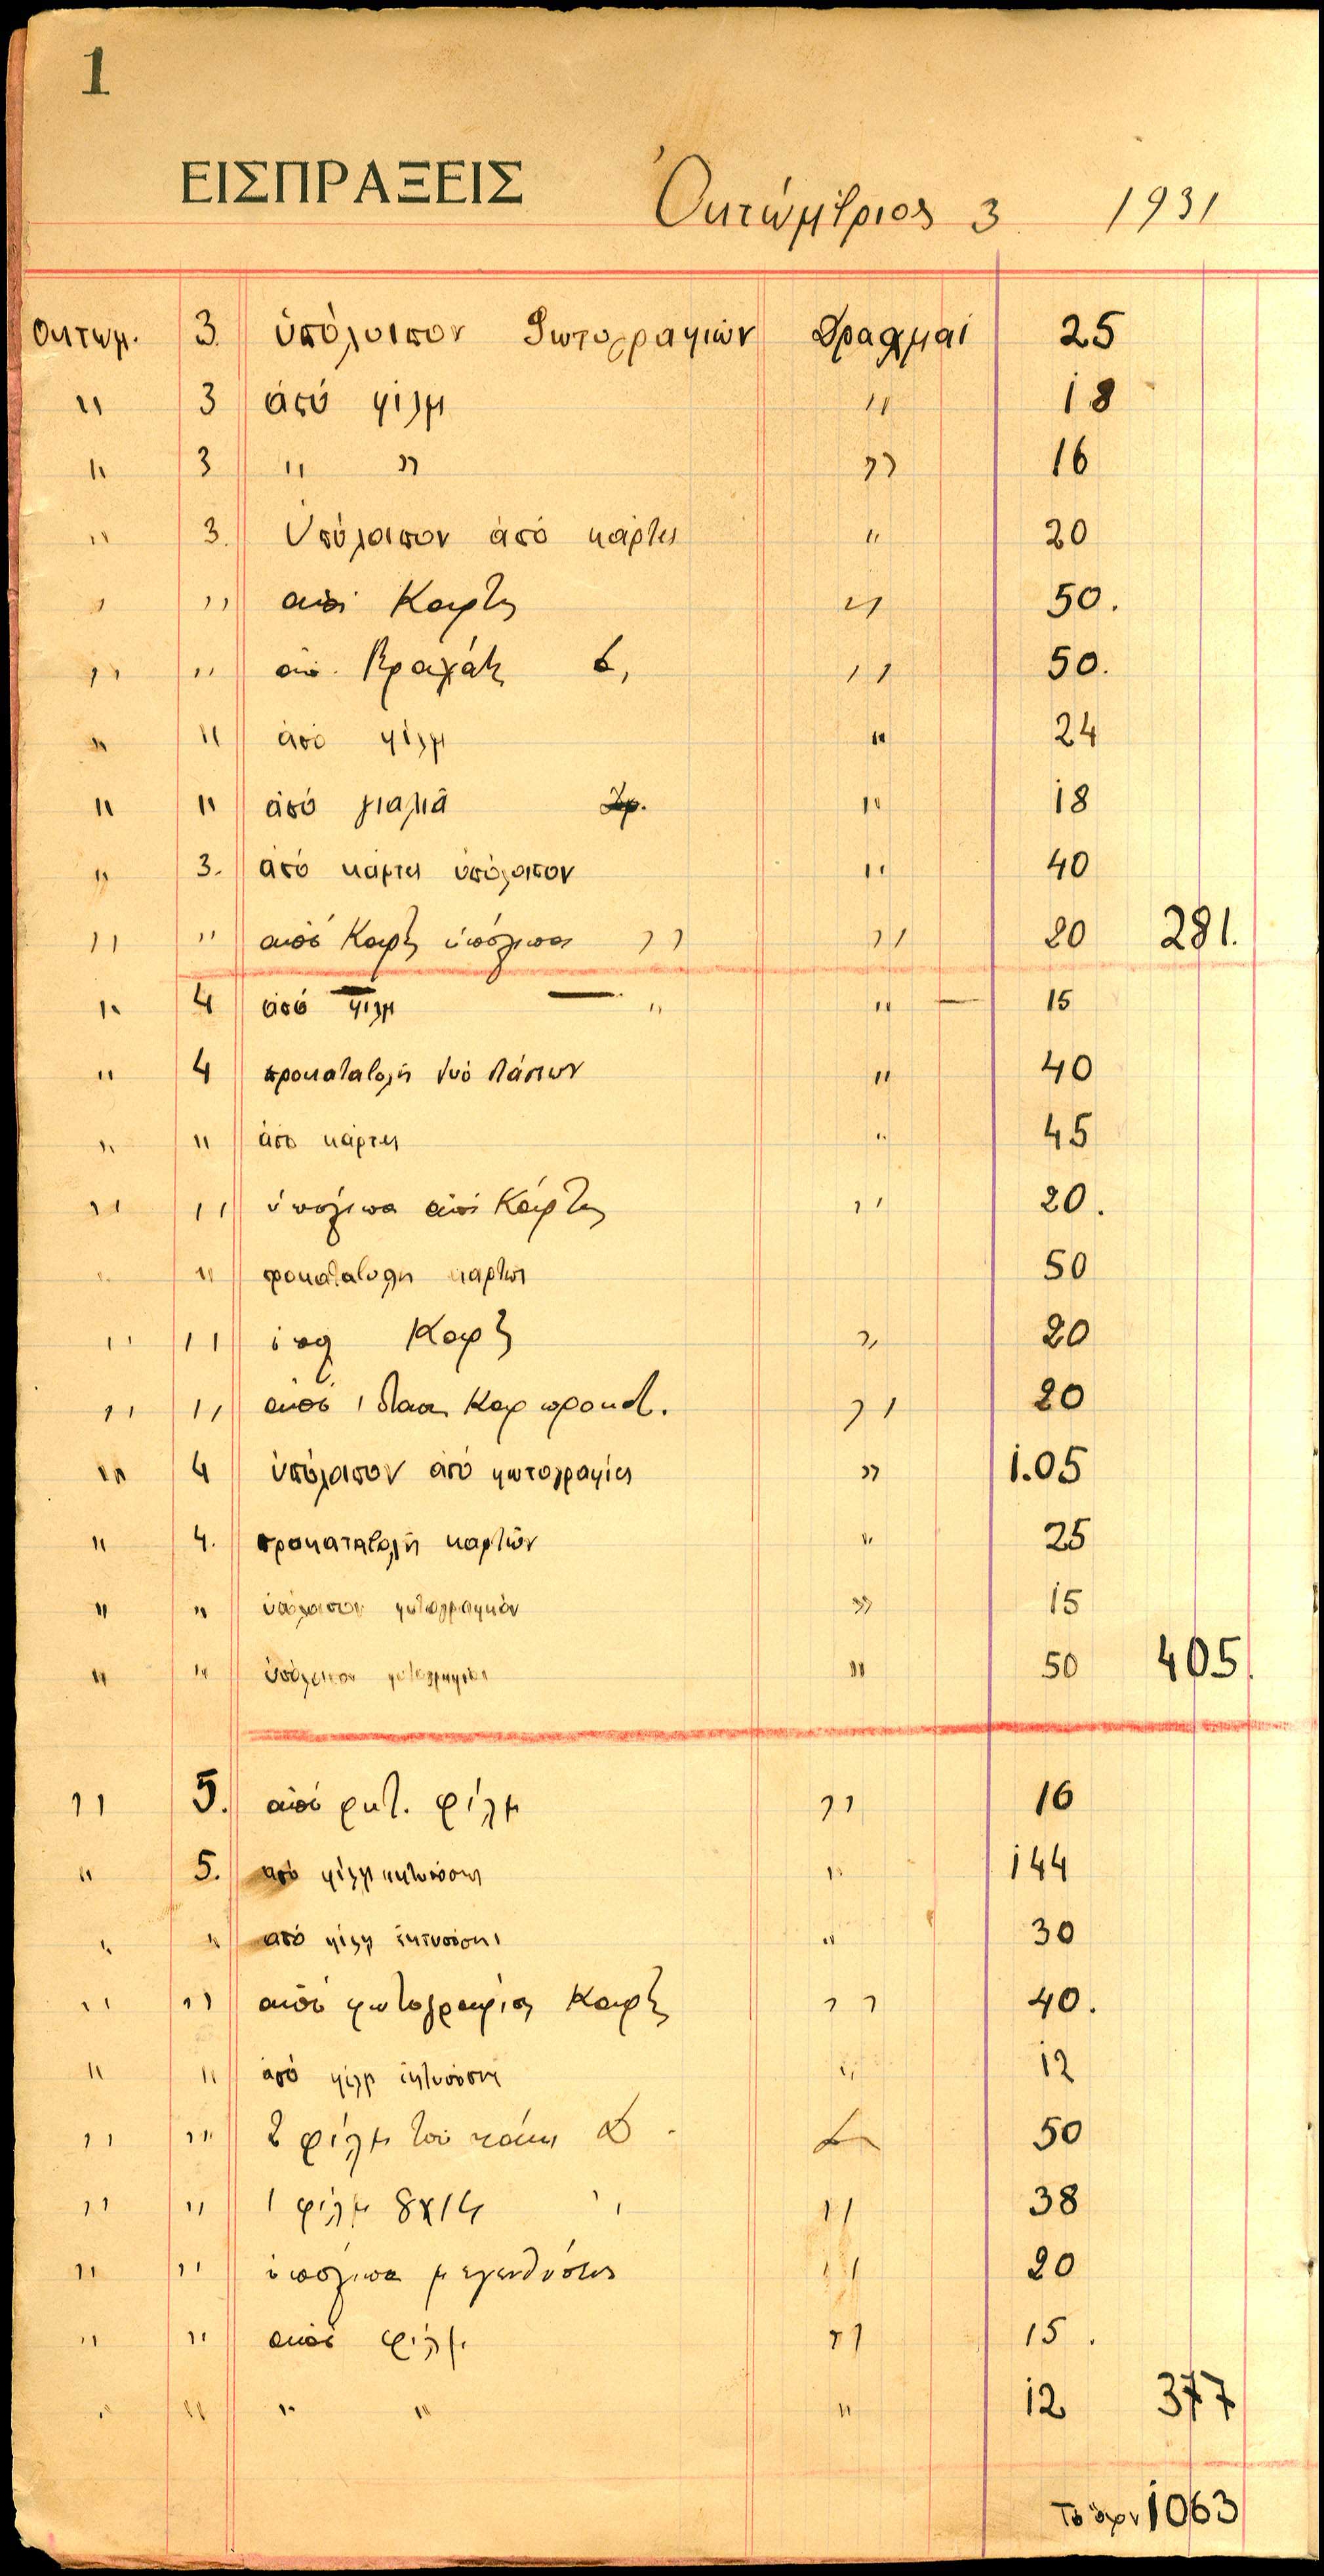 1
ΕΙΣΠΡΑΞΕΙΣ Ὀκτώμβριος 3 1931
Οκτωμ. 3 ὑπόλοιπον Φωτογραφιών Δραχμαί 25
" 3 ἀπό φίλμ " 18
" 3 " " " 16
" 3. Ὑπόλοιπον ἀπό κάρτες " 20
" " από Καρτες " 50.
" " από " 50.
" " ἀπό φίλμ " 24
" " ἀπό γιαλιά " 18
" 3. ἀπό κάρτες ὑπόλοιπον " 40
" " από Καρτ ὑπόλιπα " " 20 281.
" 4 ἀπό φιλμ " " 15
" 4 προκαταβολή δυό " 40
" " ἀπο κάρτες " 45
" " ὑπόλιπα από Κάρτες " 20.
" " προκαταβολη καρτών 50
" " ὑπολ Καρτ " 20
" " από 1 Καρ προκατ. " 20
" 4 ὑπόλοιπον ἀπό φωτογραφίες " 1.05
" 4. προκαταβολή καρτών " 25
" " ὑπόλοιπον φωτογραφιών " 15
" " ὑπόλοιπον φωτογραφίες " 50 405.
" 5. από φίλμ " 16
" 5. από φίλμ " 144
" " από φίλμ ἐκτυπόσης " 30
" " από φωτογραφίες Καρτ " 40.
" " ἀπό φίλμ ἐκτυπόση " 12
" " 2 φίλμ του 50
" " 1 φίλμ 8χ14 " " 38
" " ὑπόλιπα μεγενθύσεως " 20
" " από φίλμ " 15.
" " " " " 12 377
1063